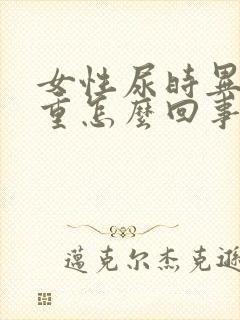 女性尿時異
重怎麼回事
邁克尔杰克遜